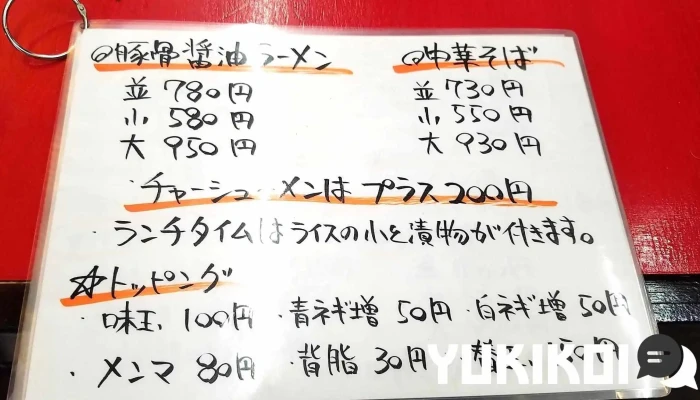 ◎豚骨醤油ラーメン
並 780円
小 580円
大 950円
◎中華そば
並 730円
小 550円
大 930円
・チャーシューメンは プラス200円
・ランチタイムはライスの小と漬物が付きます。
☆トッピング
・味玉 100円 ・青ネギ増 50円 ・白ネギ増 50円
・メンマ 80円 ・背脂 30円 ・替玉 150円
YUKIKOI